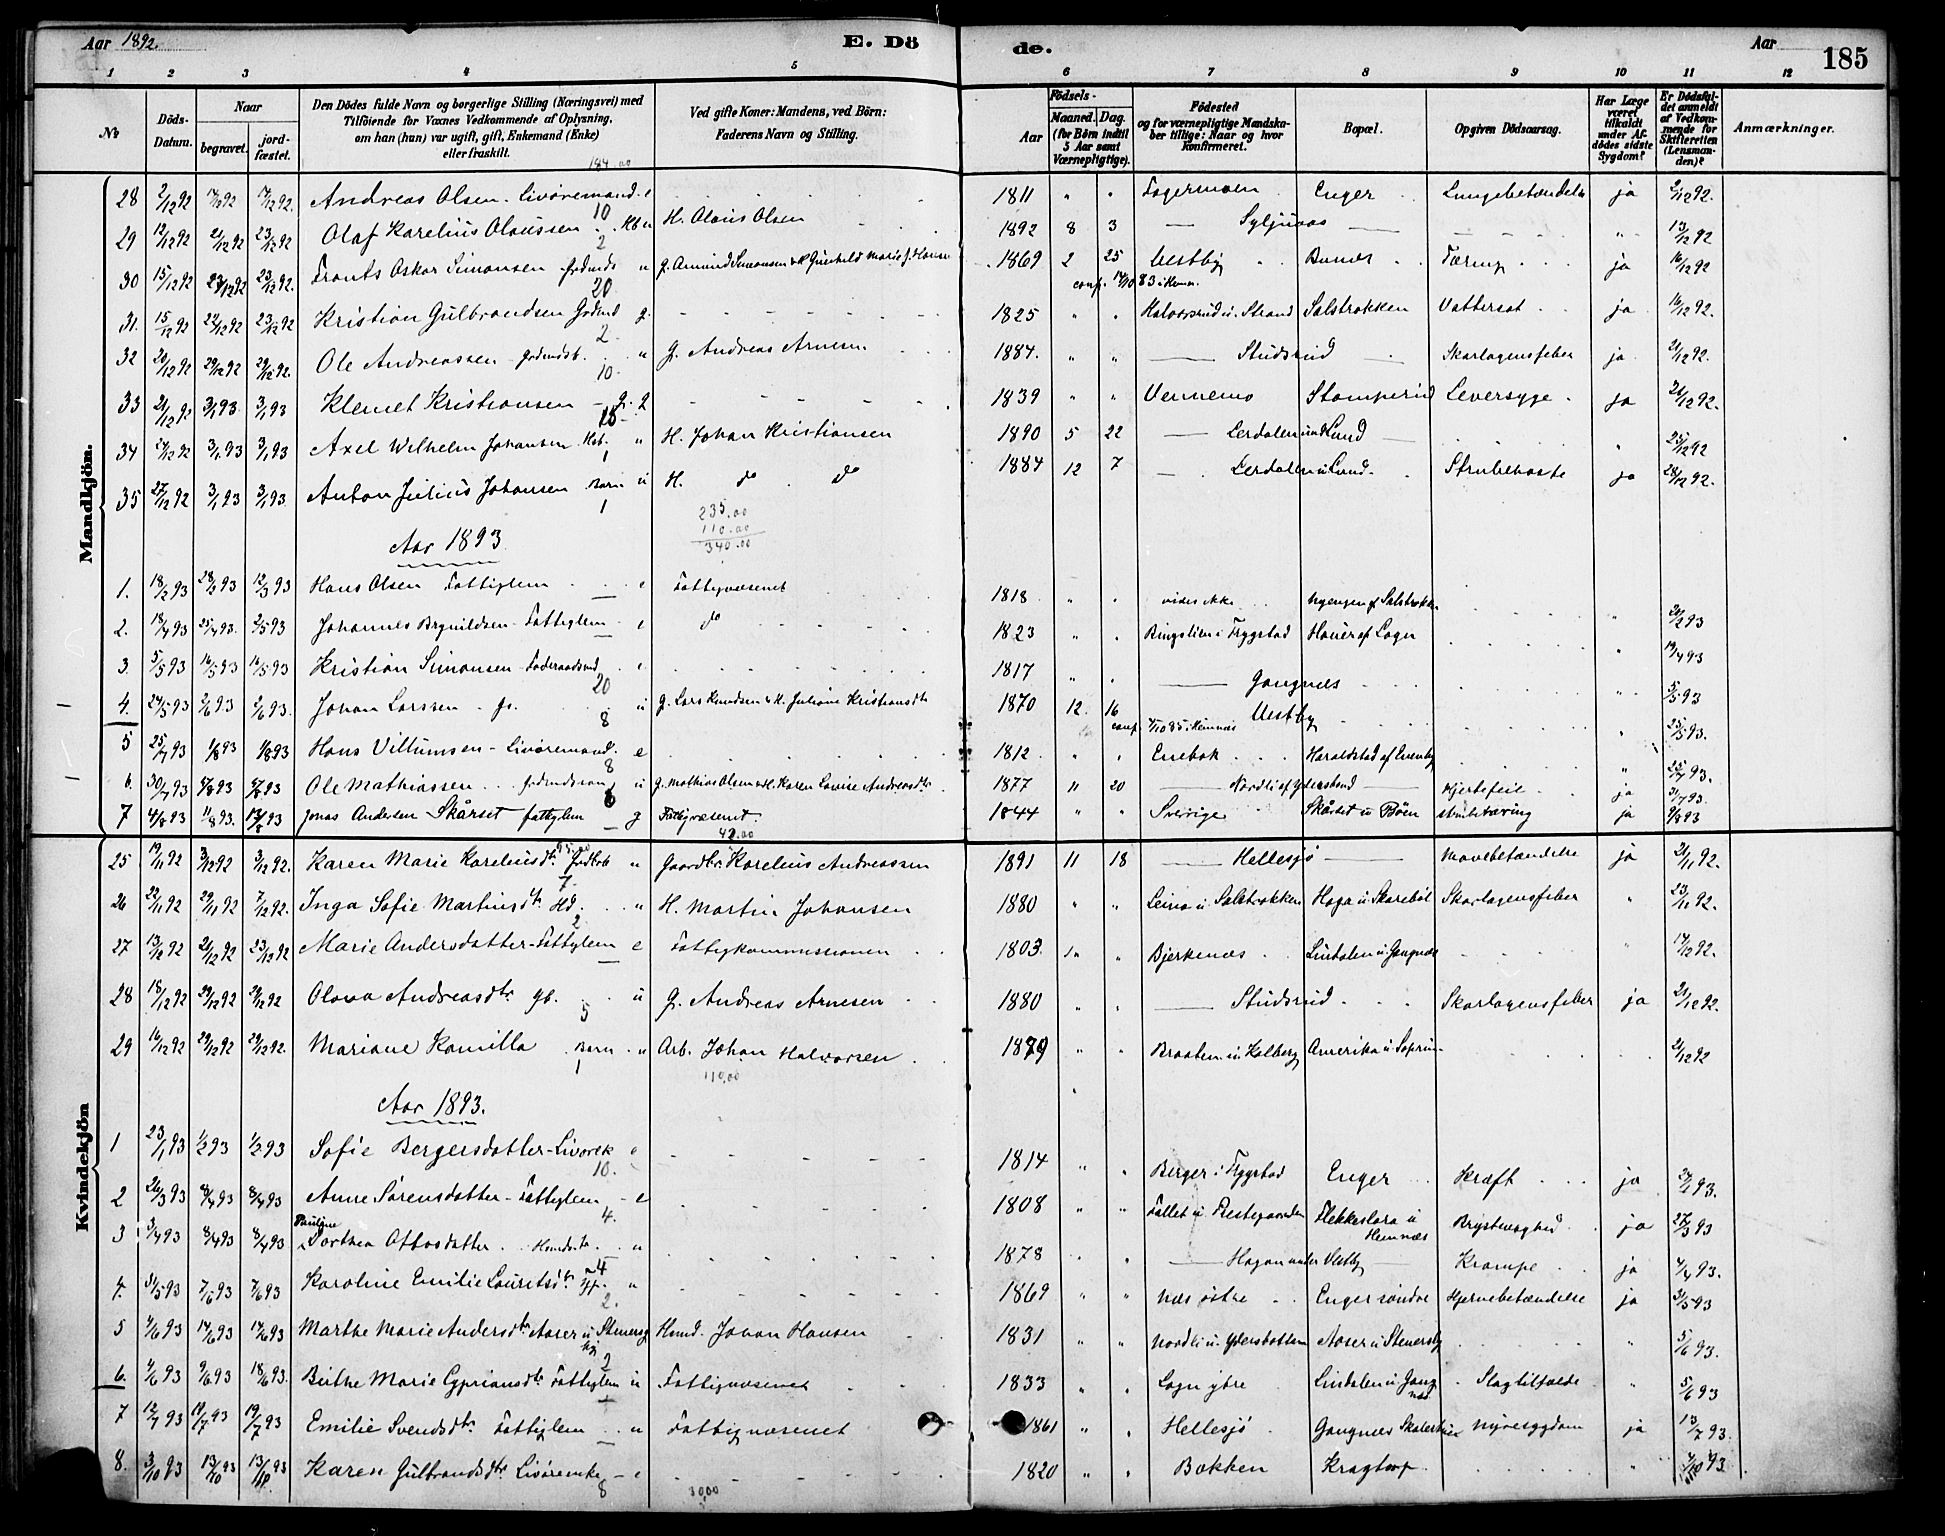 Aar 1892. E. Dö de. Aar 185
1 2 3 4 5 6 7 8 9 10 11 12
No
Döds-Datum.
Naar begravet. jordfæstet.
Den Dödes fulde Navn og borgerlige Stilling (Næringsvei) med Tilföiende for Voxnes Vedkommende af Oplysning, om han (hun) var ugift, gift, Enkemand (Enke) eller fraskilt.
Ved gifte Koner: Mandens, ved Börn: Faderens Navn og Stilling.
Födsels-
Aar
Maaned. Dag. (for Börn indtil 5 Aar samt Værnepligtige).
Födested og for værnepligtige Mandskaber tillige: Naar og hvor Konfirmeret.
Bopæl.
Opgiven Dödsaarsag.
Har Læge været tilkaldt under Afdödes sidste Sygdom?
Er Dödsfaldet anmeldt af Vedkommende for Skifteretten (Lensmanden)?
Anmærkninger.
184.00
Mandkjön.
28 2/12 92 17/12 92 17/12 92. Andreas Olsen. Livöremand. e 10 1811 " " Fagermoen Enger Lungebetændelse ja 2/12 92.
29 12/12 92 21/12 92 23/12 92 Olaf Karelius Olaussen Hb u 2 H. Olaus Olsen 1892 8 3 — Syljuaas — " 13/12 92
30 15/12 92 23/12 92 23/12 92. Frants Oskar Simonsen u 20 1869 2 25 Vestby Færing ja 16/12 92
conf. 14/10 83 i Hemn.
31. 15/12 92 22/12 92 23/12 92 Kristian Gulbrandsen Gdmd g. 2 1825 " " Halvorsrud u. Strand Salstrøkken Vattersot ja 16/12 92.
32 20/12 92 29/12 92 29/12 92. Ole Andreassen u 10 G. Andreas Arnesen 1884. " " — Studsrud Skarlagensfeber ja 21/12 92.
33 21/12 92 3/1 93 3/1 93 Klemet Kristiansen - G. g 10 1839 " " Vennemo Stomperud Leversyge. ja 21/12 92.
34 3/1 93 3/1 93 Axel Wilhelm Johansen Hb. u 1 H. Johan Kristiansen 1890 5 22 — Lerdalen und Lund — " 23/12 92
35 27/12 92 3/1 93 3/1 93 Anton Julius Johansen Barn u 1 H. do do 1884 12 7 — Lerdalen u Lund. Strubehoste ja 28/12 92.
235.00
110.00
340.00
Aar 1893
1. 18/2 93 28/2 93 12/3 93 Hans Olsen Fattiglem e Fattigvæsenet 1818 " " vides ikke af Salstrøkken 20/2 93
2. 18/4 93 25/4 93. 2/5 93 Johannes Brynildsen Fattiglem e do 1823 " " i Trygstad af Logn " 19/4 93
3. 5/5 93 16/5 93 16/5 93 Kristian Simonsen e 20 1817 " " — Gangnæs " 5/5 93
4. 24/5 93 2/6 93 2/6 93. Johan Larssen u 8 G. Lars Knudsen & H. Juliane Kristiansdtr 1870 12. 16 Vestby " 25/5 93.
conf. 4/10 85 i Hemnæs
5 25/7 93 1/8 93 1/8 93 Hans Villumsen - Livöremand e 8 1812 " " Enebak Haraldstad " 25/7 93.
6. 30/7 93 8/8 93 8/8 93 Ole Mathiassen u 8 G. Mathias Olsen & H. Karen Lovise Andreasdtr 1877 11 20 — Nordli af Ydersbond — Hjertefeil ja 31/7 93.
7 4/8 93 11/8 93. 14/8 93 Jonas Andersen Skårset fattiglem g Fattigvæsenet 1844 " " Sverrige Skårset u Böen ja 9/8 93
42.00
Kvindekjön
25 19/11 92 3/12 92 3/12 92. Karen Marie Kareliusdtr u 7 Gaardbr. Karelius Andreassen 1891 11 18 — Hellesjö — Mavebetændelse ja 21/11 92.
26 22/11 92 29/11 92 7/12 92. Inga Sofie Martinsdtr Hd. u 2 H. Martin Johansen 1880 " " Leira u Salstrøkken Haga u Skarebøl Skarlagensfeber " 23/11 92.
27 13/12 92 21/12 92 23/12 92 Marie Andersdatter - Fattiglem e Fattigkommissionen 1803. " Bjerkenæs Lindalen u Gangnæs " 14/12 92.
28 18/12 92 29/12 92 29/12 92 Olava Andreasdtr Gb. u 5 G. Andreas Arnesen 1880 " " — Studsrud Skarlagensfeber ja 21/12 92.
29 16/12 92 29/12 92 29/12 92. Mariane Kamilla Barn u 1 Arb. Johan Halvorsen 1879 " " Braaten u Kolberg Amerika u 21/12 92
110.00
Aar 1893.
1 23/1 93 1/2 93 1/2 93 Sofie Bergersdatter - e 10. 1814 " " Berger i Trygstad Enger Kræft ja 24/1 93.
2 26/3 93 8/4 93 8/4 93 Anne Sørensdatter - Fattiglem e 4. 1808 " " Fallet u Prestegaarden Flekkeslora u Hemnæs ja 27/3 93
3 3/4 93 8/4 93 8/4 93 Pauline Dorthea Ottosdatter u 4 1878 " — Hagan under Vestby — Krampe ja 4/4 93.
4. 31/5 93 7/6 93 7/6 93 Karoline Emilie Lauritsdtr u 2. 1869 " " Næs östre Enger söndre Hjernebetændelse ja 31/5 93
5 4/6 93 14/6 93 14/6 93 Marthe Marie Andersdtr Aaser u Stenersby 2 Hmd. Johan Hansen 1831 " " Nordli u. Ydersbotten Aaser u Stenersby " 5/6 93.
6. 4/6 93 9/6 93 18/6 93. Birthe Marie Cypriansdtr Fattiglem u Fattigvæsenet 1833 " " Logn ydre Lindalen u Gangnæs Slagtilfælde " 5/6 93
7 12/7 93 19/7 93 19/7 93 Emilie Svendsdtr Fattiglem u Fattigvæsenet 1861 " " Hellesjö Gangnæs Nyresygdom ja 13/7 93.
8. 3/10 93 13/10 93 13/10 93 Karen Gulbrandsdtr e 8 1820 " " Bakken Kragtorp " 4/10 93
30.00